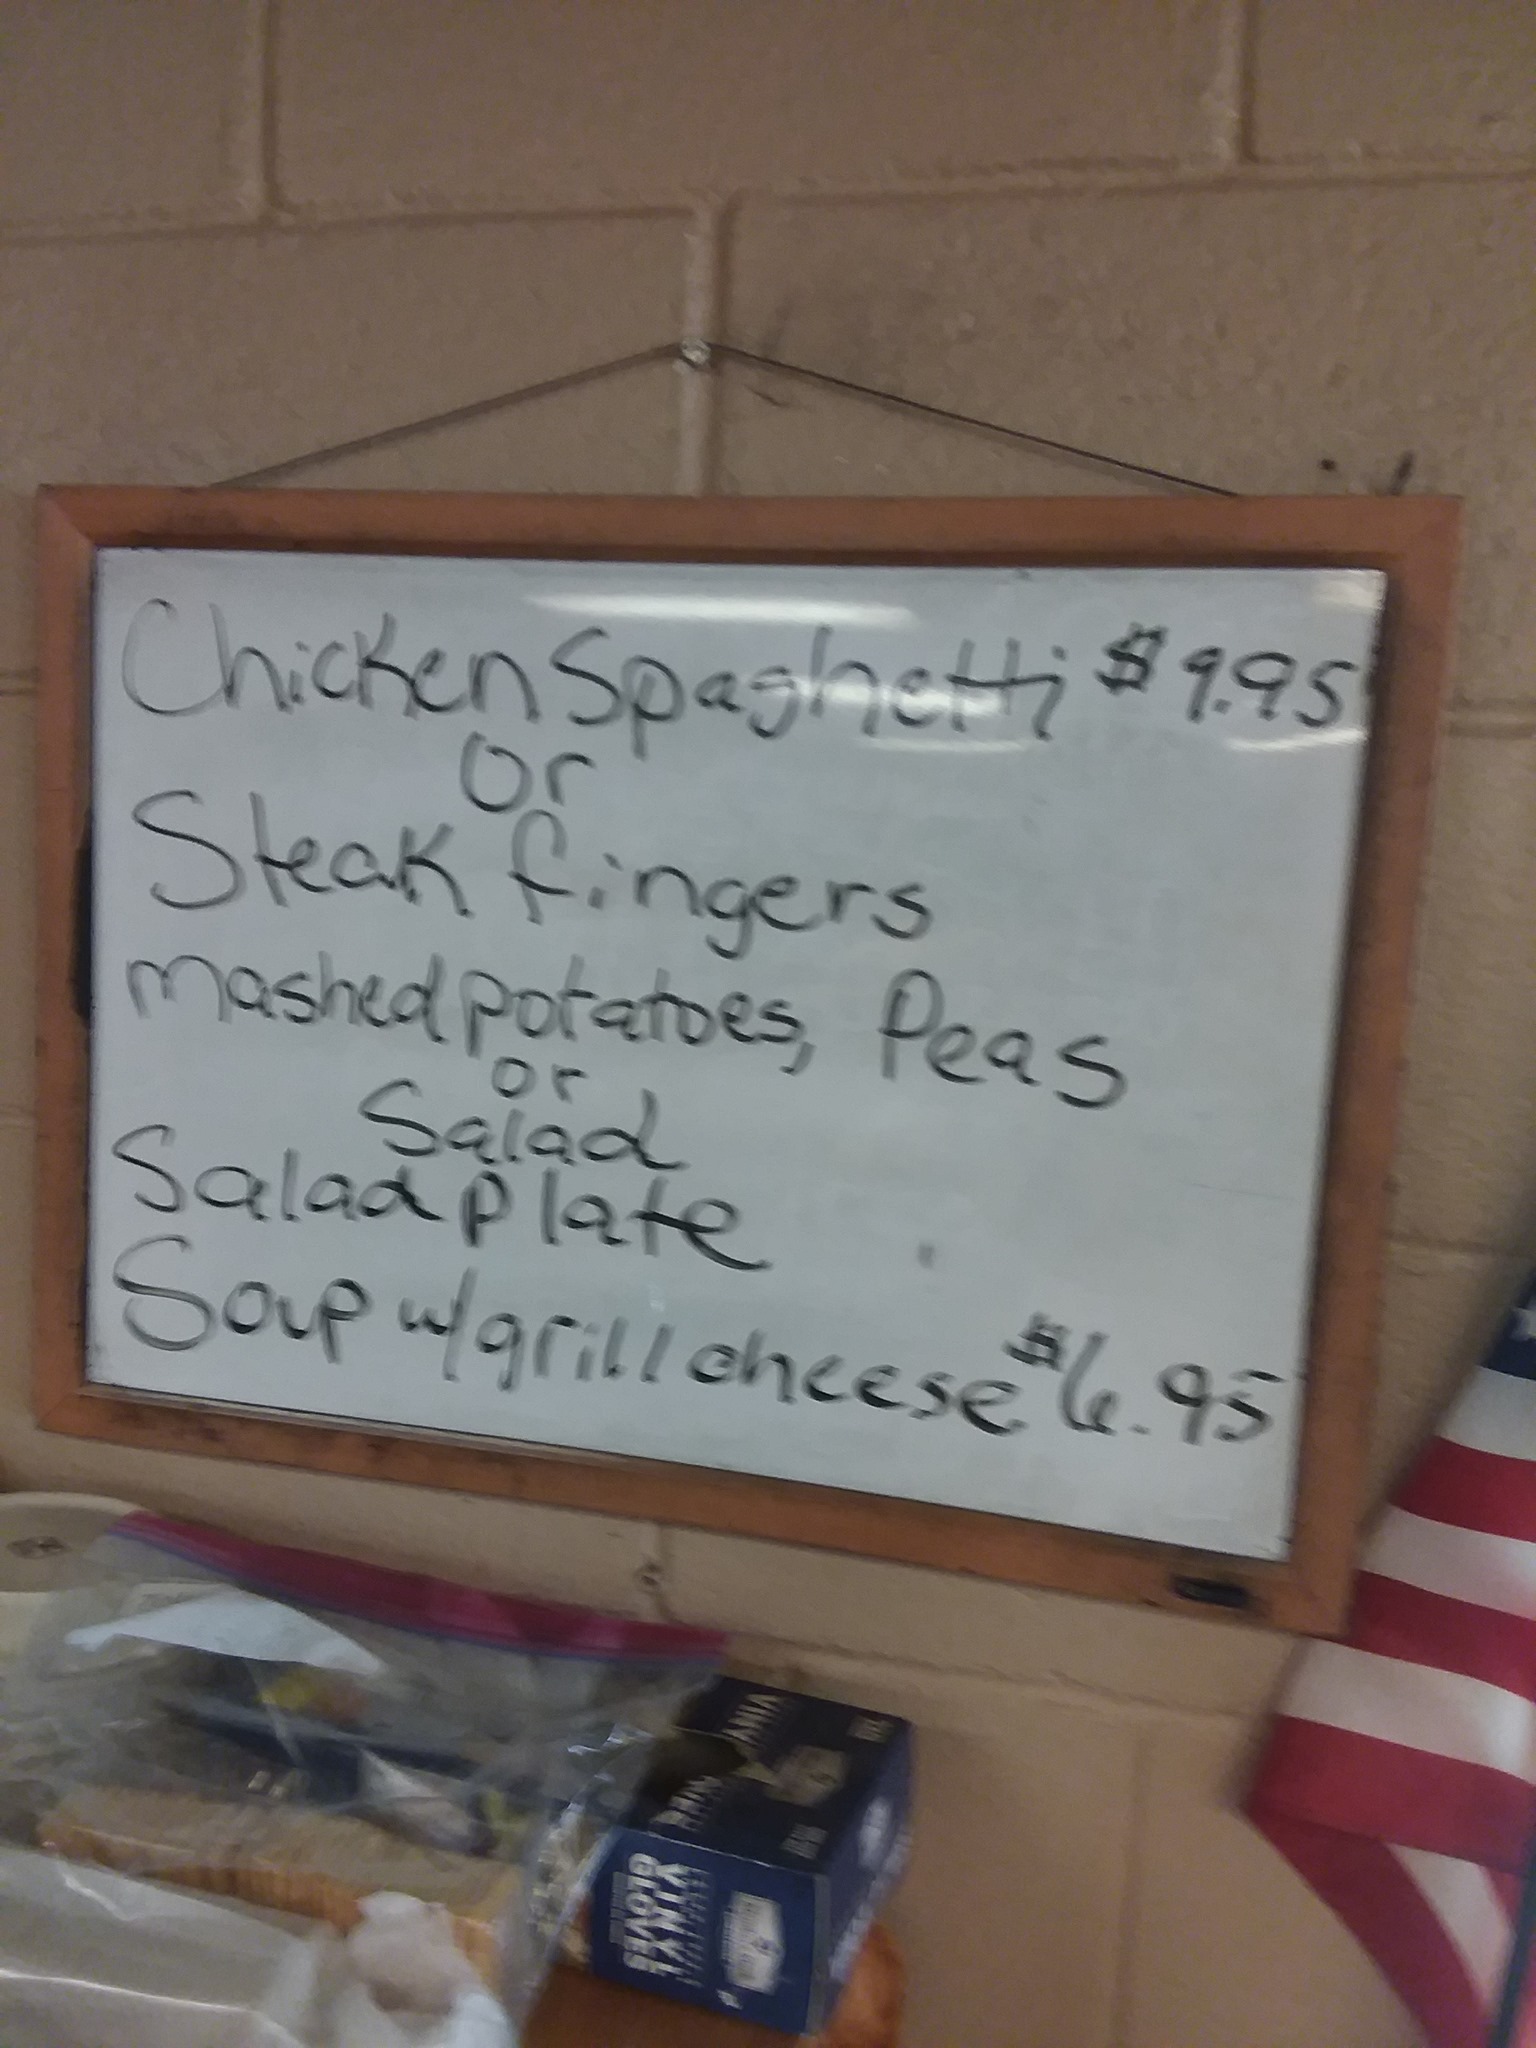 Chicken Spaghetti $9.95
or
Steak fingers
mashed potatoes, Peas
or
Salad
Salad plate
Soup w/grill cheese $6.95
VINYL
VINYL
GLOVES